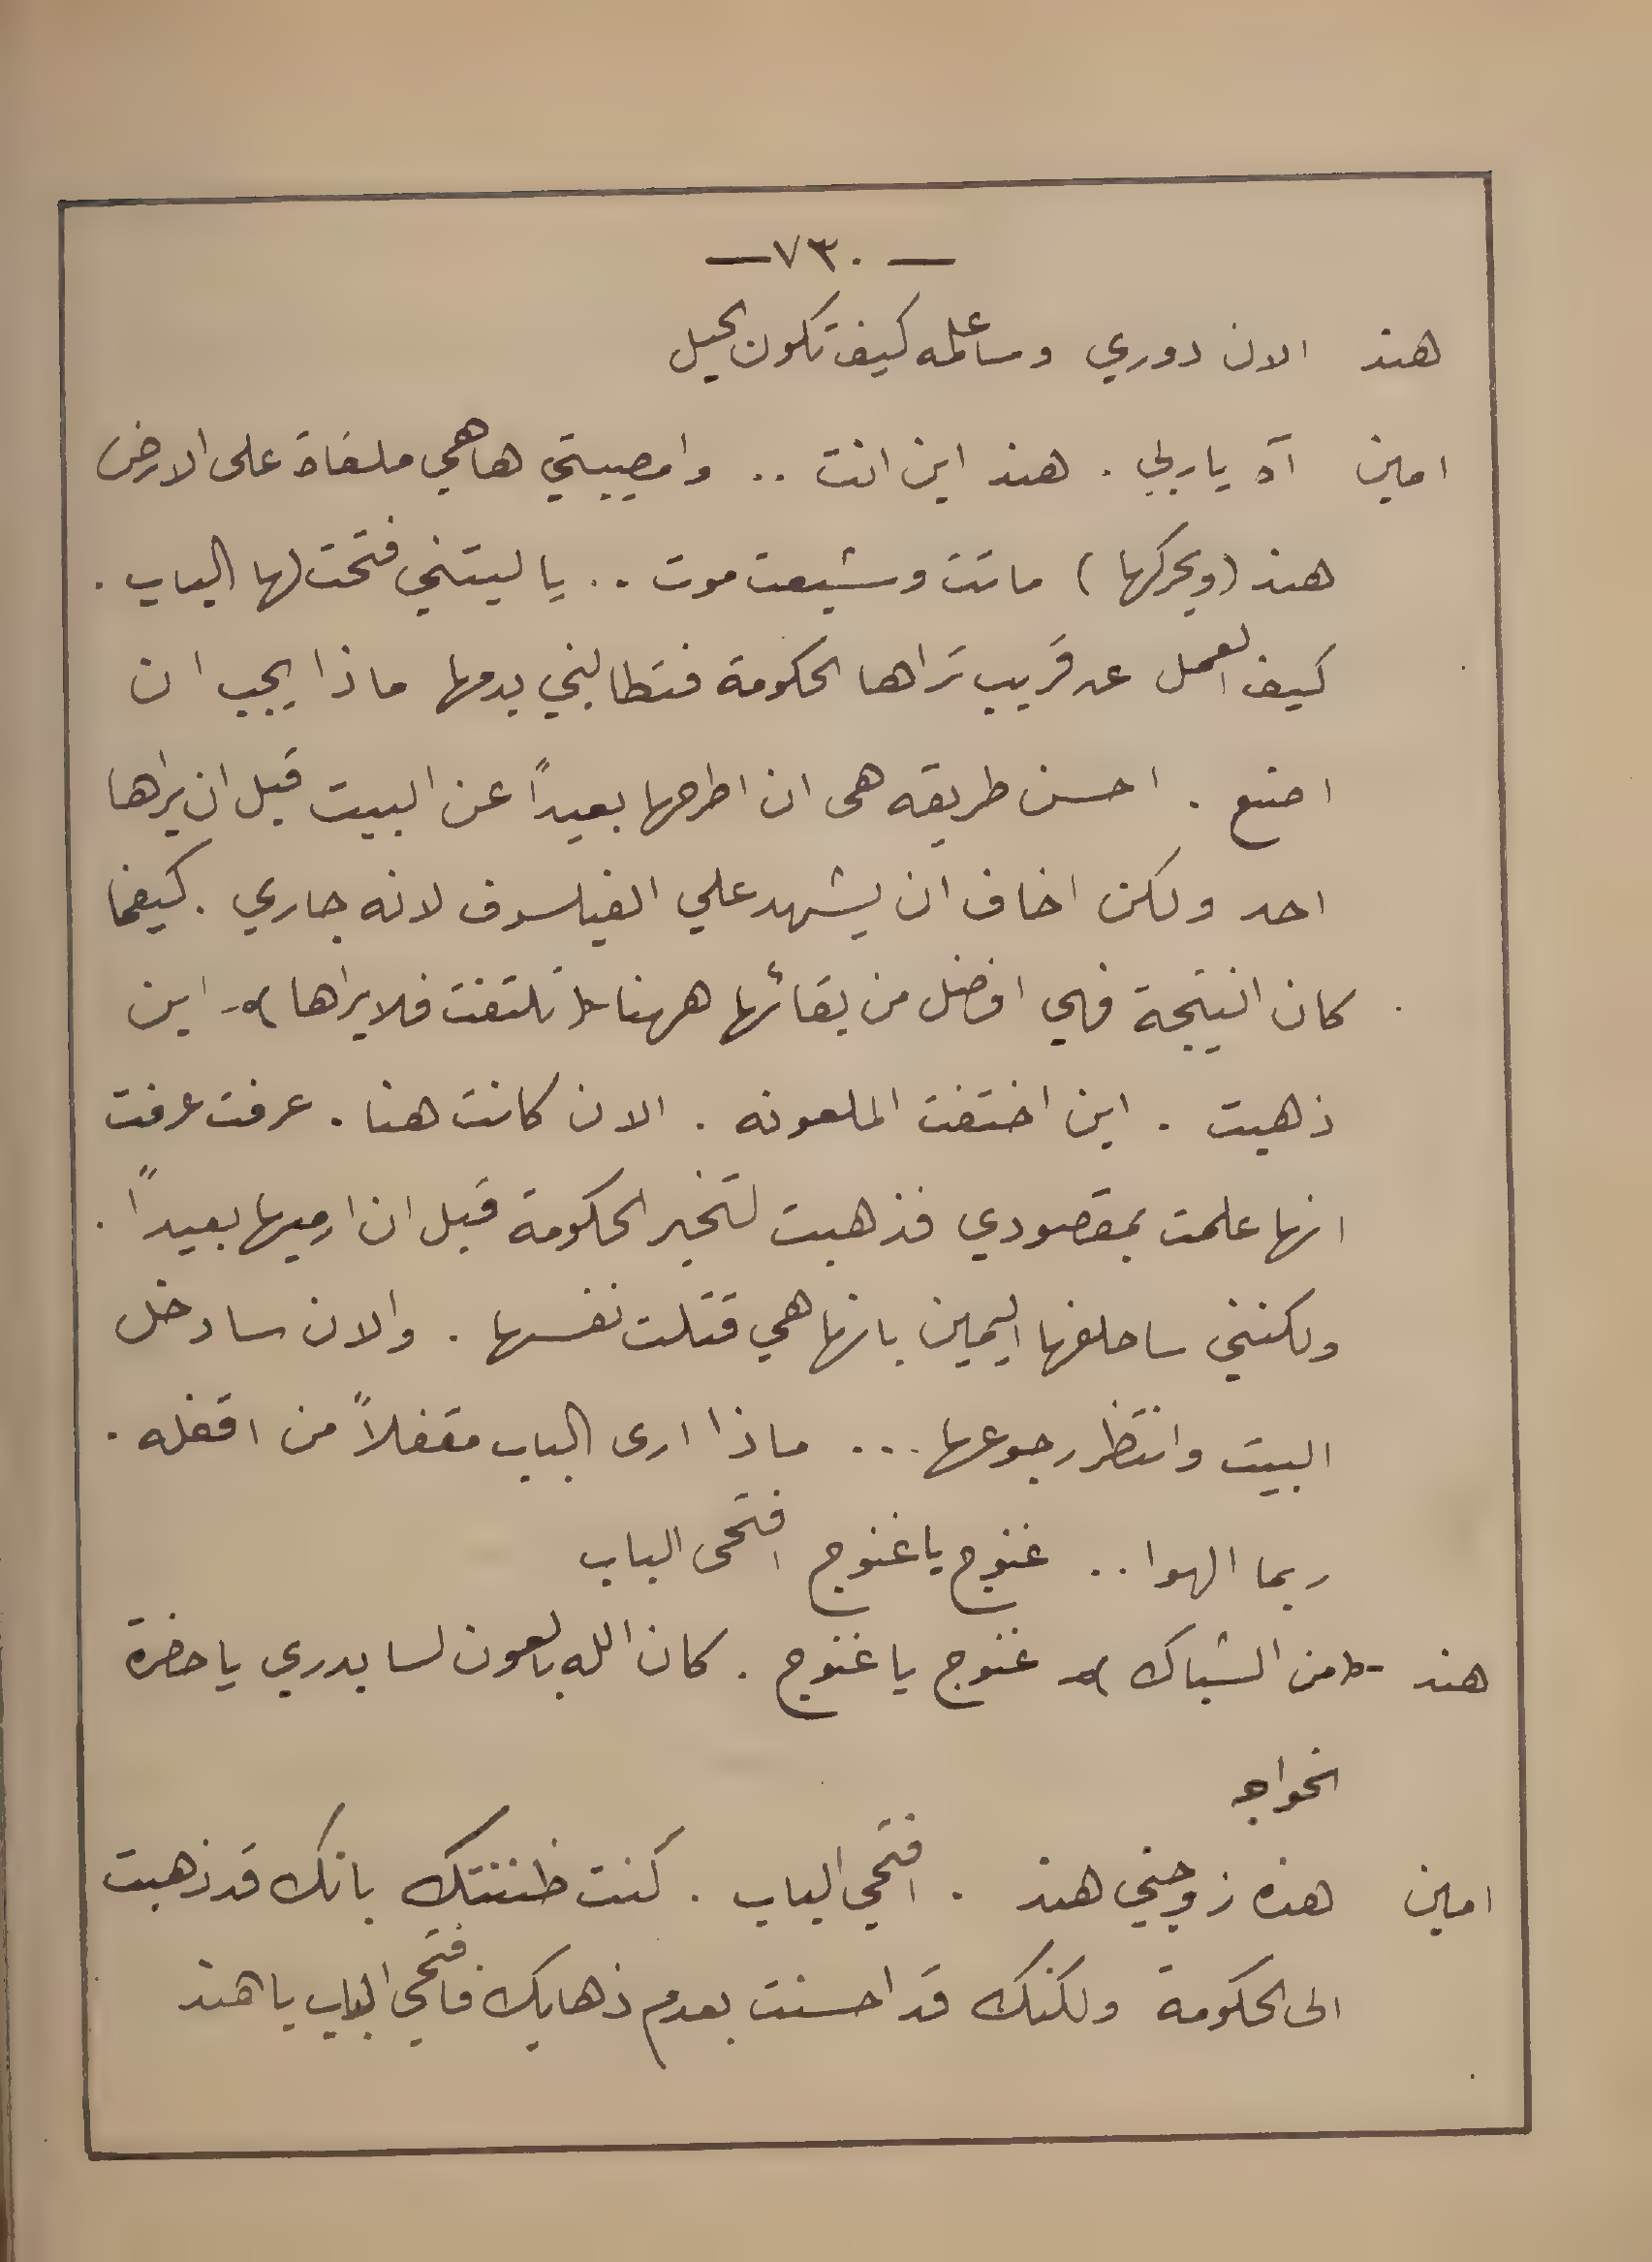 — ٧٣٠ —
هند الان دوري وساعلمه كيف تكون الحيل
امين آه ياربي . هند اين انت .. وامصيبتي هاهي ملقاة على الارض
هند (ويحركها) ماتت وشبعت موت .. يا ليتني فتحت لها الباب .
كيف العمل عن قريب تراها الحكومة فتطالبني بدمها ماذا يجب ان
اصنع . احسن طريقه هى ان اطرحها بعيداً عن البيت قبل ان يراها
احد ولكن اخاف ان يشهد علي الفيلسوف لانه جاري . كيفما
كان النتيجة فهي افضل من بقائها ههنا (تلتفت فلا يراها) اين
ذهبت . اين اختفت الملعونه . الان كانت هنا . عرفت عرفت
انها علمت بمقصودي فذهبت لتخبر الحكومة قبل ان ارميها بعيداً .
ولكنني ساحلفها اليمين بانها هي قتلت نفسها . والان سادخل
البيت وانتظر رجوعها ... ماذا ارى الباب مقفلاً من اقفله .
ربما الهوا .. غنوج يا غنوج افتحى الباب
هند - (من الشباك) غنوج يا غنوج . كان الله بالعون لسا بدري يا حضرة
الخواجه
امين هذه زوجتي هند . افتحي الباب . كنت ظننتك بانك قد ذهبت
الى الحكومة ولكنك قد احسنت بعدم ذهابك فافتحي الباب يا هند